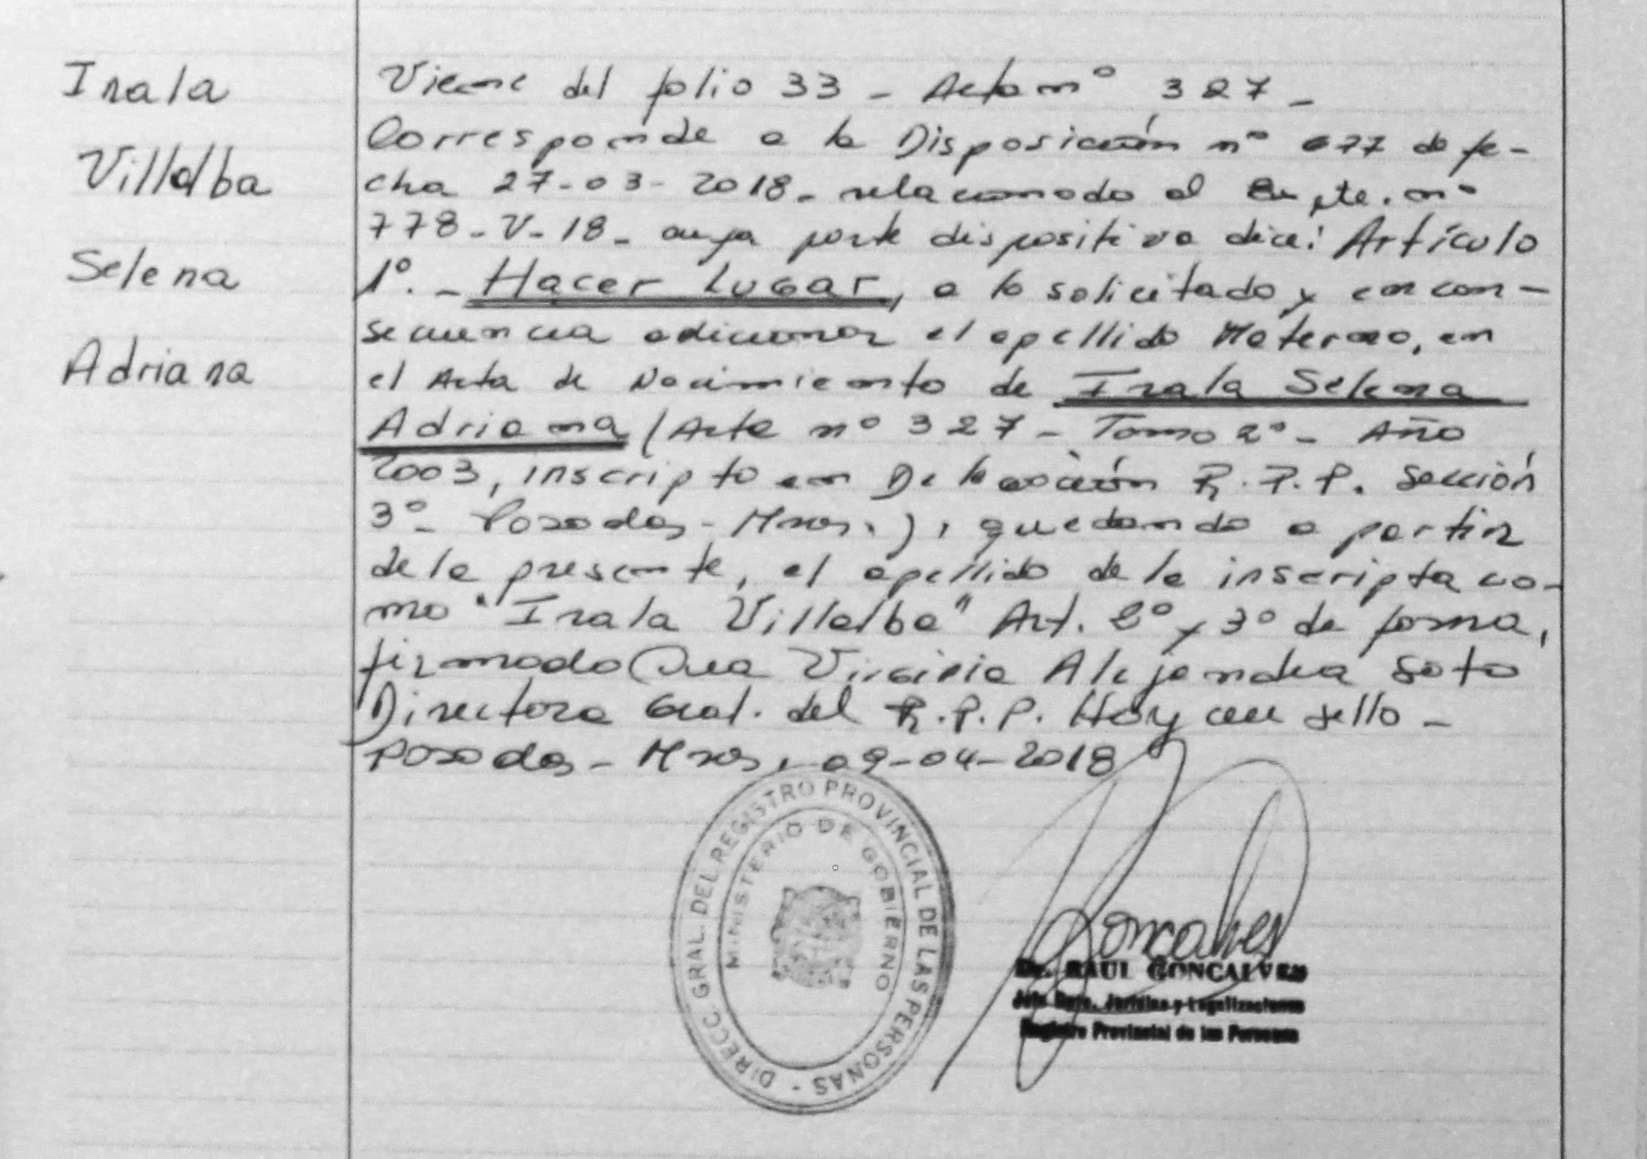 Irala
Villalba
Selena
Adriana
Viene del folio 33 - Acta nº 327 -
Corresponde a la Disposición nº 677 de fe-
cha 27-03-2018- relacionado al Expte. nº
778-V-18- cuya parte dispositiva dice: Artículo
1º.- Hacer Lugar, a lo solicitado y en con-
secuencia adicionar el apellido Materno, en
el Acta de Nacimiento de Irala Selena
Adriana (Acta nº 327 - Tomo 2º - Año
2003, inscripto en Delegación R.P.P. Sección
3º- Posadas - Mnes.), quedando a partir
de la presente, el apellido de la inscripta co-
mo "Irala Villalba" Art. 2º y 3º de forma,
firmado Virginia Alejandra Soto
Directora Gral. del R.P.P. Hay un sello -
Posadas - Mnes, 09-04-2018
DIRECC. GRAL. DEL REGISTRO PROVINCIAL DE LAS PERSONAS -
MINISTERIO DE GOBIERNO
Goncalves
Dr. RAUL GONCALVES
Jefe Dpto. Jurídico y Legalizaciones
Registro Provincial de las Personas